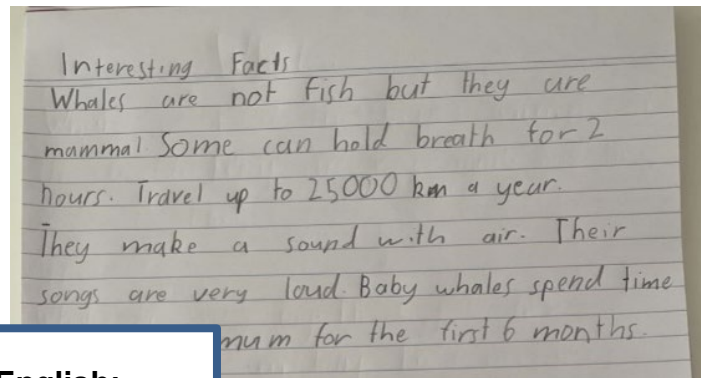 Interesting Facts
Whales are not fish but they are
mammal Some can hold breath for 2
hours. Travel up to 25000 km a year.
They make a sound with air. Their
songs are very loud. Baby whales spend time
mum for the first 6 months.
English: